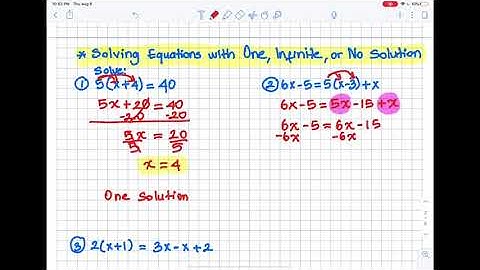 10:53 PM Thu Aug 6
* Solving Equations with One, Infinite, or No Solution
Solve:
① 5(x+4) = 40
5x+20 = 40
-20 -20
5x = 20
5 5
x = 4
One Solution
② 6x-5 = 5(x-3)+x
6x-5 = 5x-15 +x
6x-5 = 6x-15
-6x -6x
③ 2(x+1) = 3x-x+2